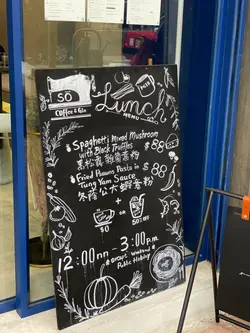 SÖ
Coffee & Gin
Lunch
MENU
Spaghetti Mixed Mushroom
with Black Truffles
$88
黑松露雜菌意粉
Fried Prawns Pasta in
$88
Tung Yam Sauce
冬蔭公大蝦意粉
+
OR
$0
12:00nn - 3:00p.m
# except Weekend &
Public Holiday